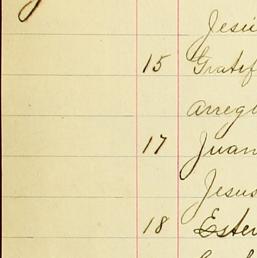 Jesú
15 Gratif
arregl
17 Juan
Jesus
18 Ester